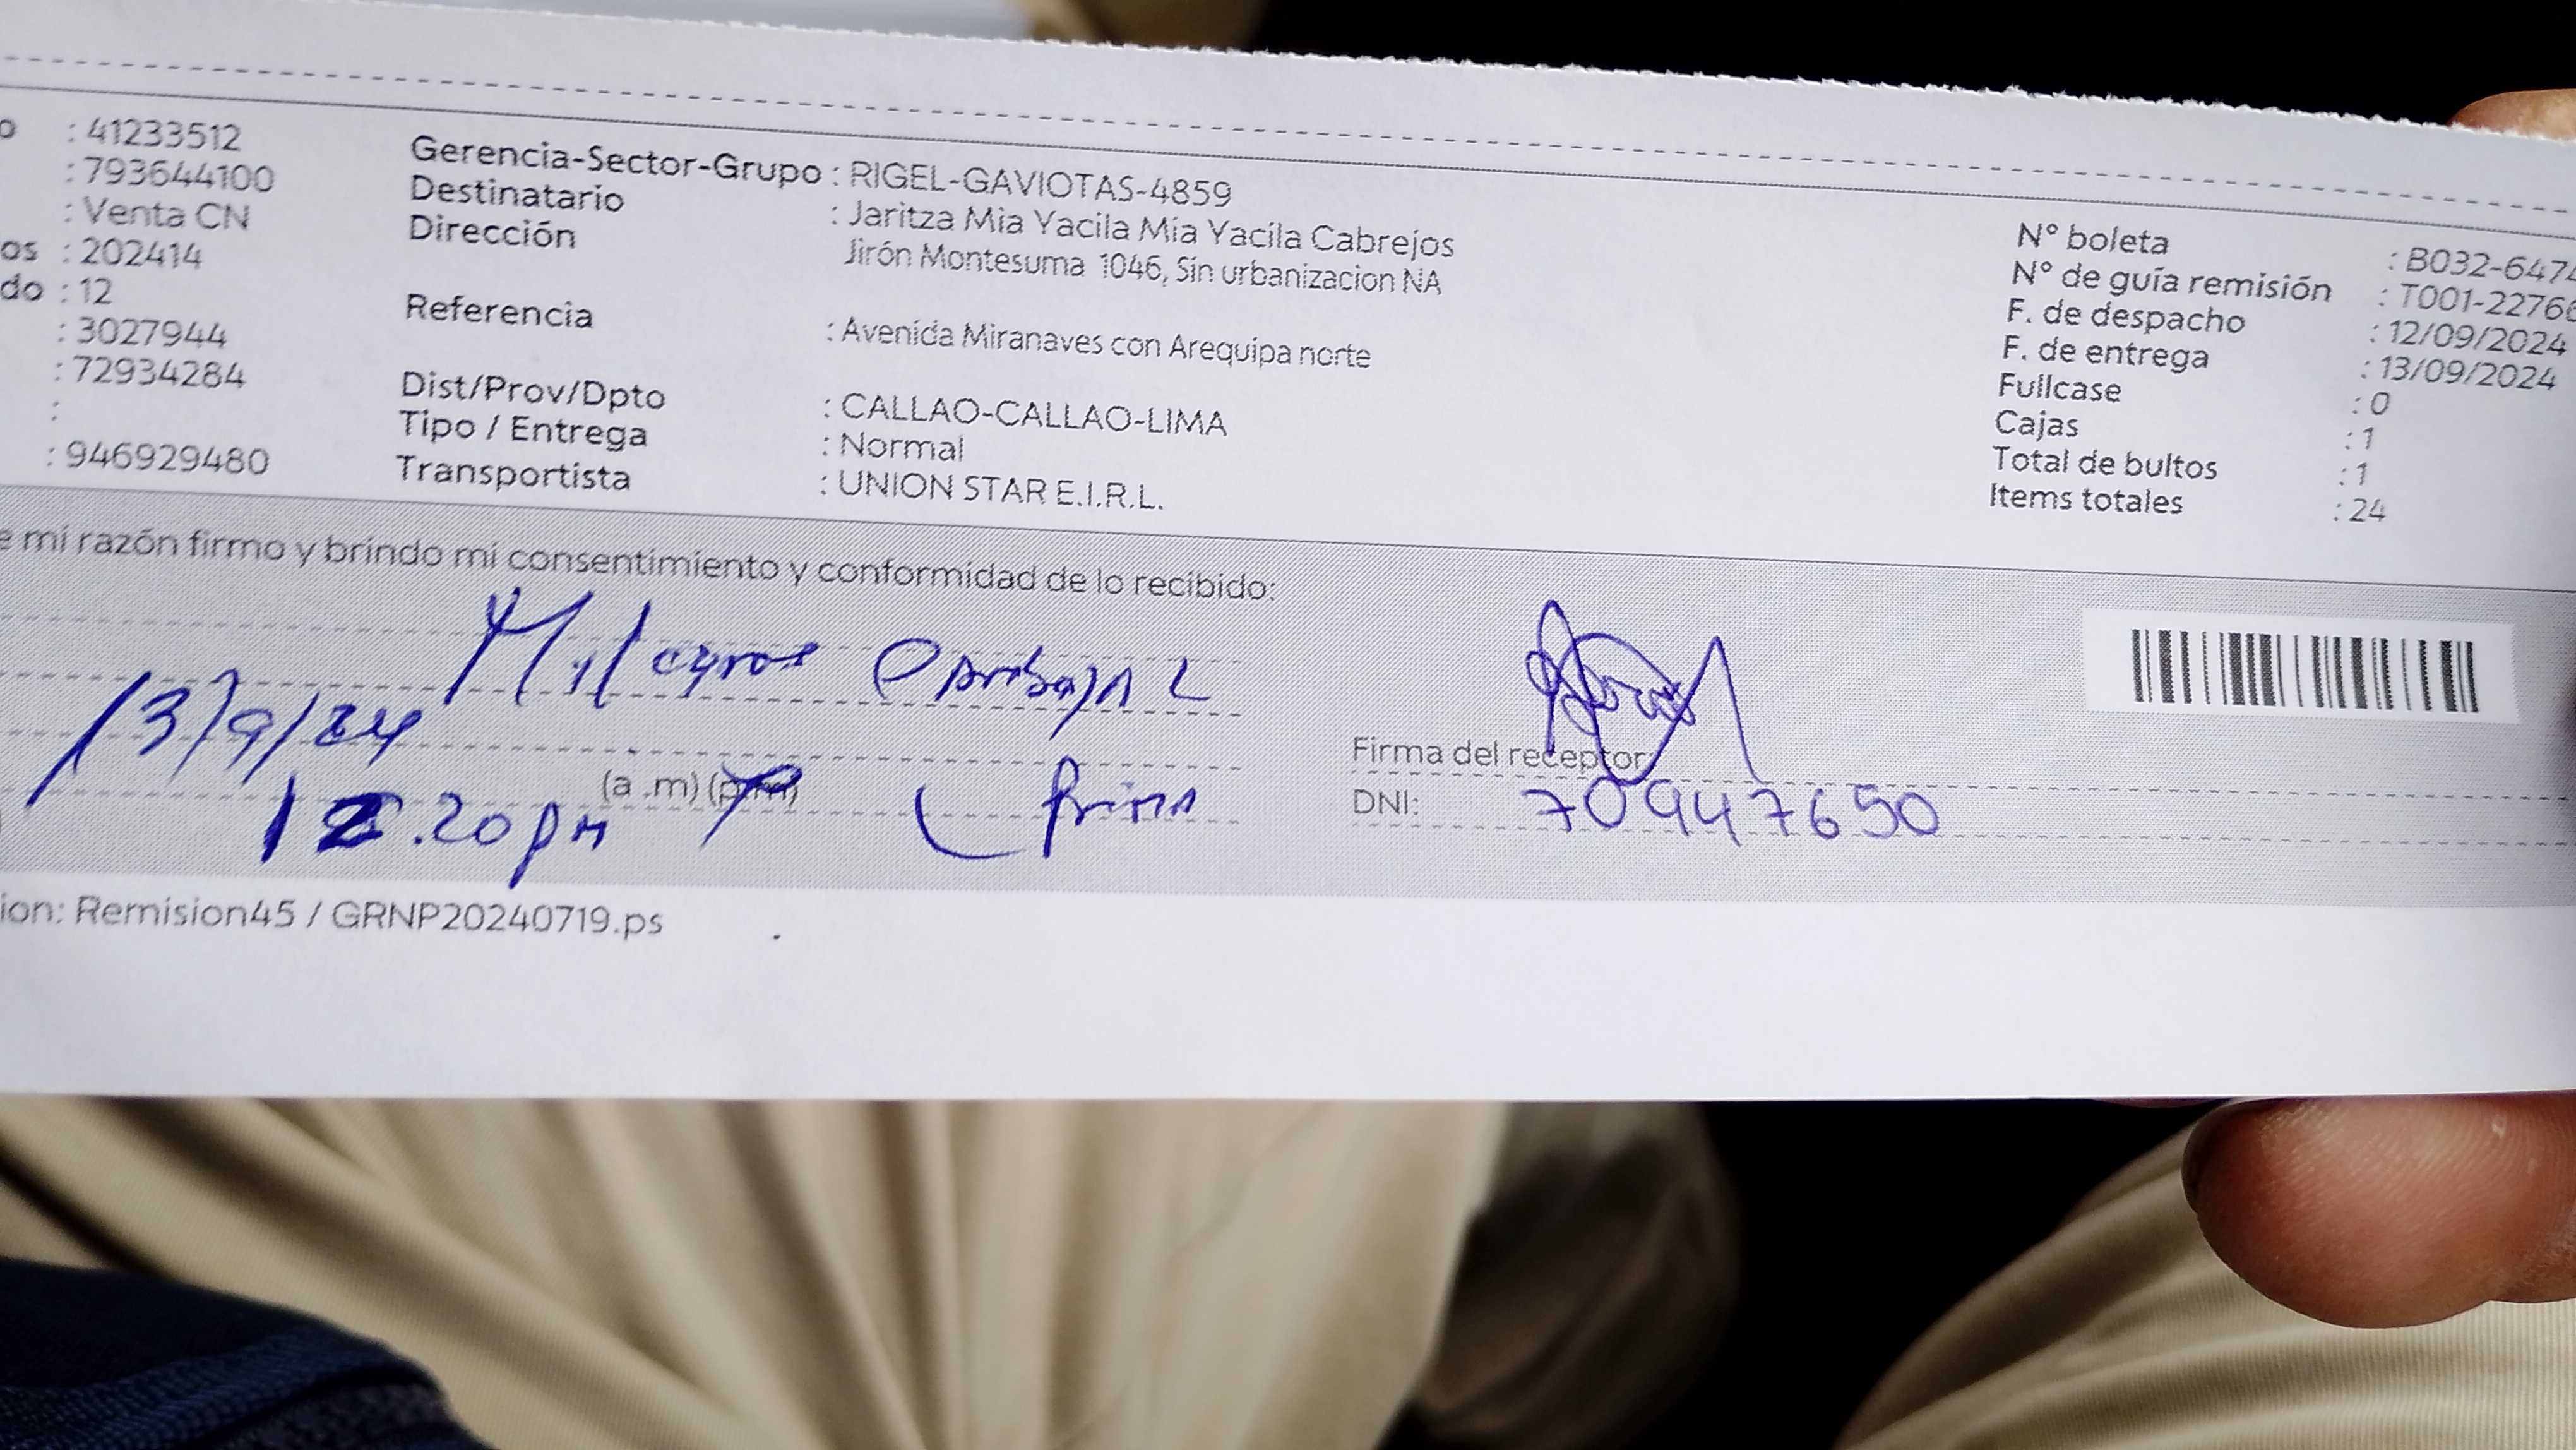 o : 41233512
: 793644100
: Venta CN
os : 202414
do : 12
: 3027944
: 72934284
:
: 946929480
Gerencia-Sector-Grupo : RIGEL-GAVIOTAS-4859
Destinatario : Jaritza Mia Yacila Mia Yacila Cabrejos
Dirección Jirón Montesuma 1046, Sin urbanizacion NA
Referencia : Avenida Miranaves con Arequipa norte
Dist/Prov/Dpto : CALLAO-CALLAO-LIMA
Tipo / Entrega : Normal
Transportista : UNION STAR E.I.R.L.
N° boleta : B032-6474
N° de guía remisión : T001-22766
F. de despacho : 12/09/2024
F. de entrega : 13/09/2024
Fullcase : 0
Cajas : 1
Total de bultos : 1
Items totales : 24
e mi razón firmo y brindo mi consentimiento y conformidad de lo recibido:
Milagros
13/9/24
(a .m) (p.m)
12.20 pm ( prima
Firma del receptor
DNI: 70947650
ion: Remision45 / GRNP20240719.ps